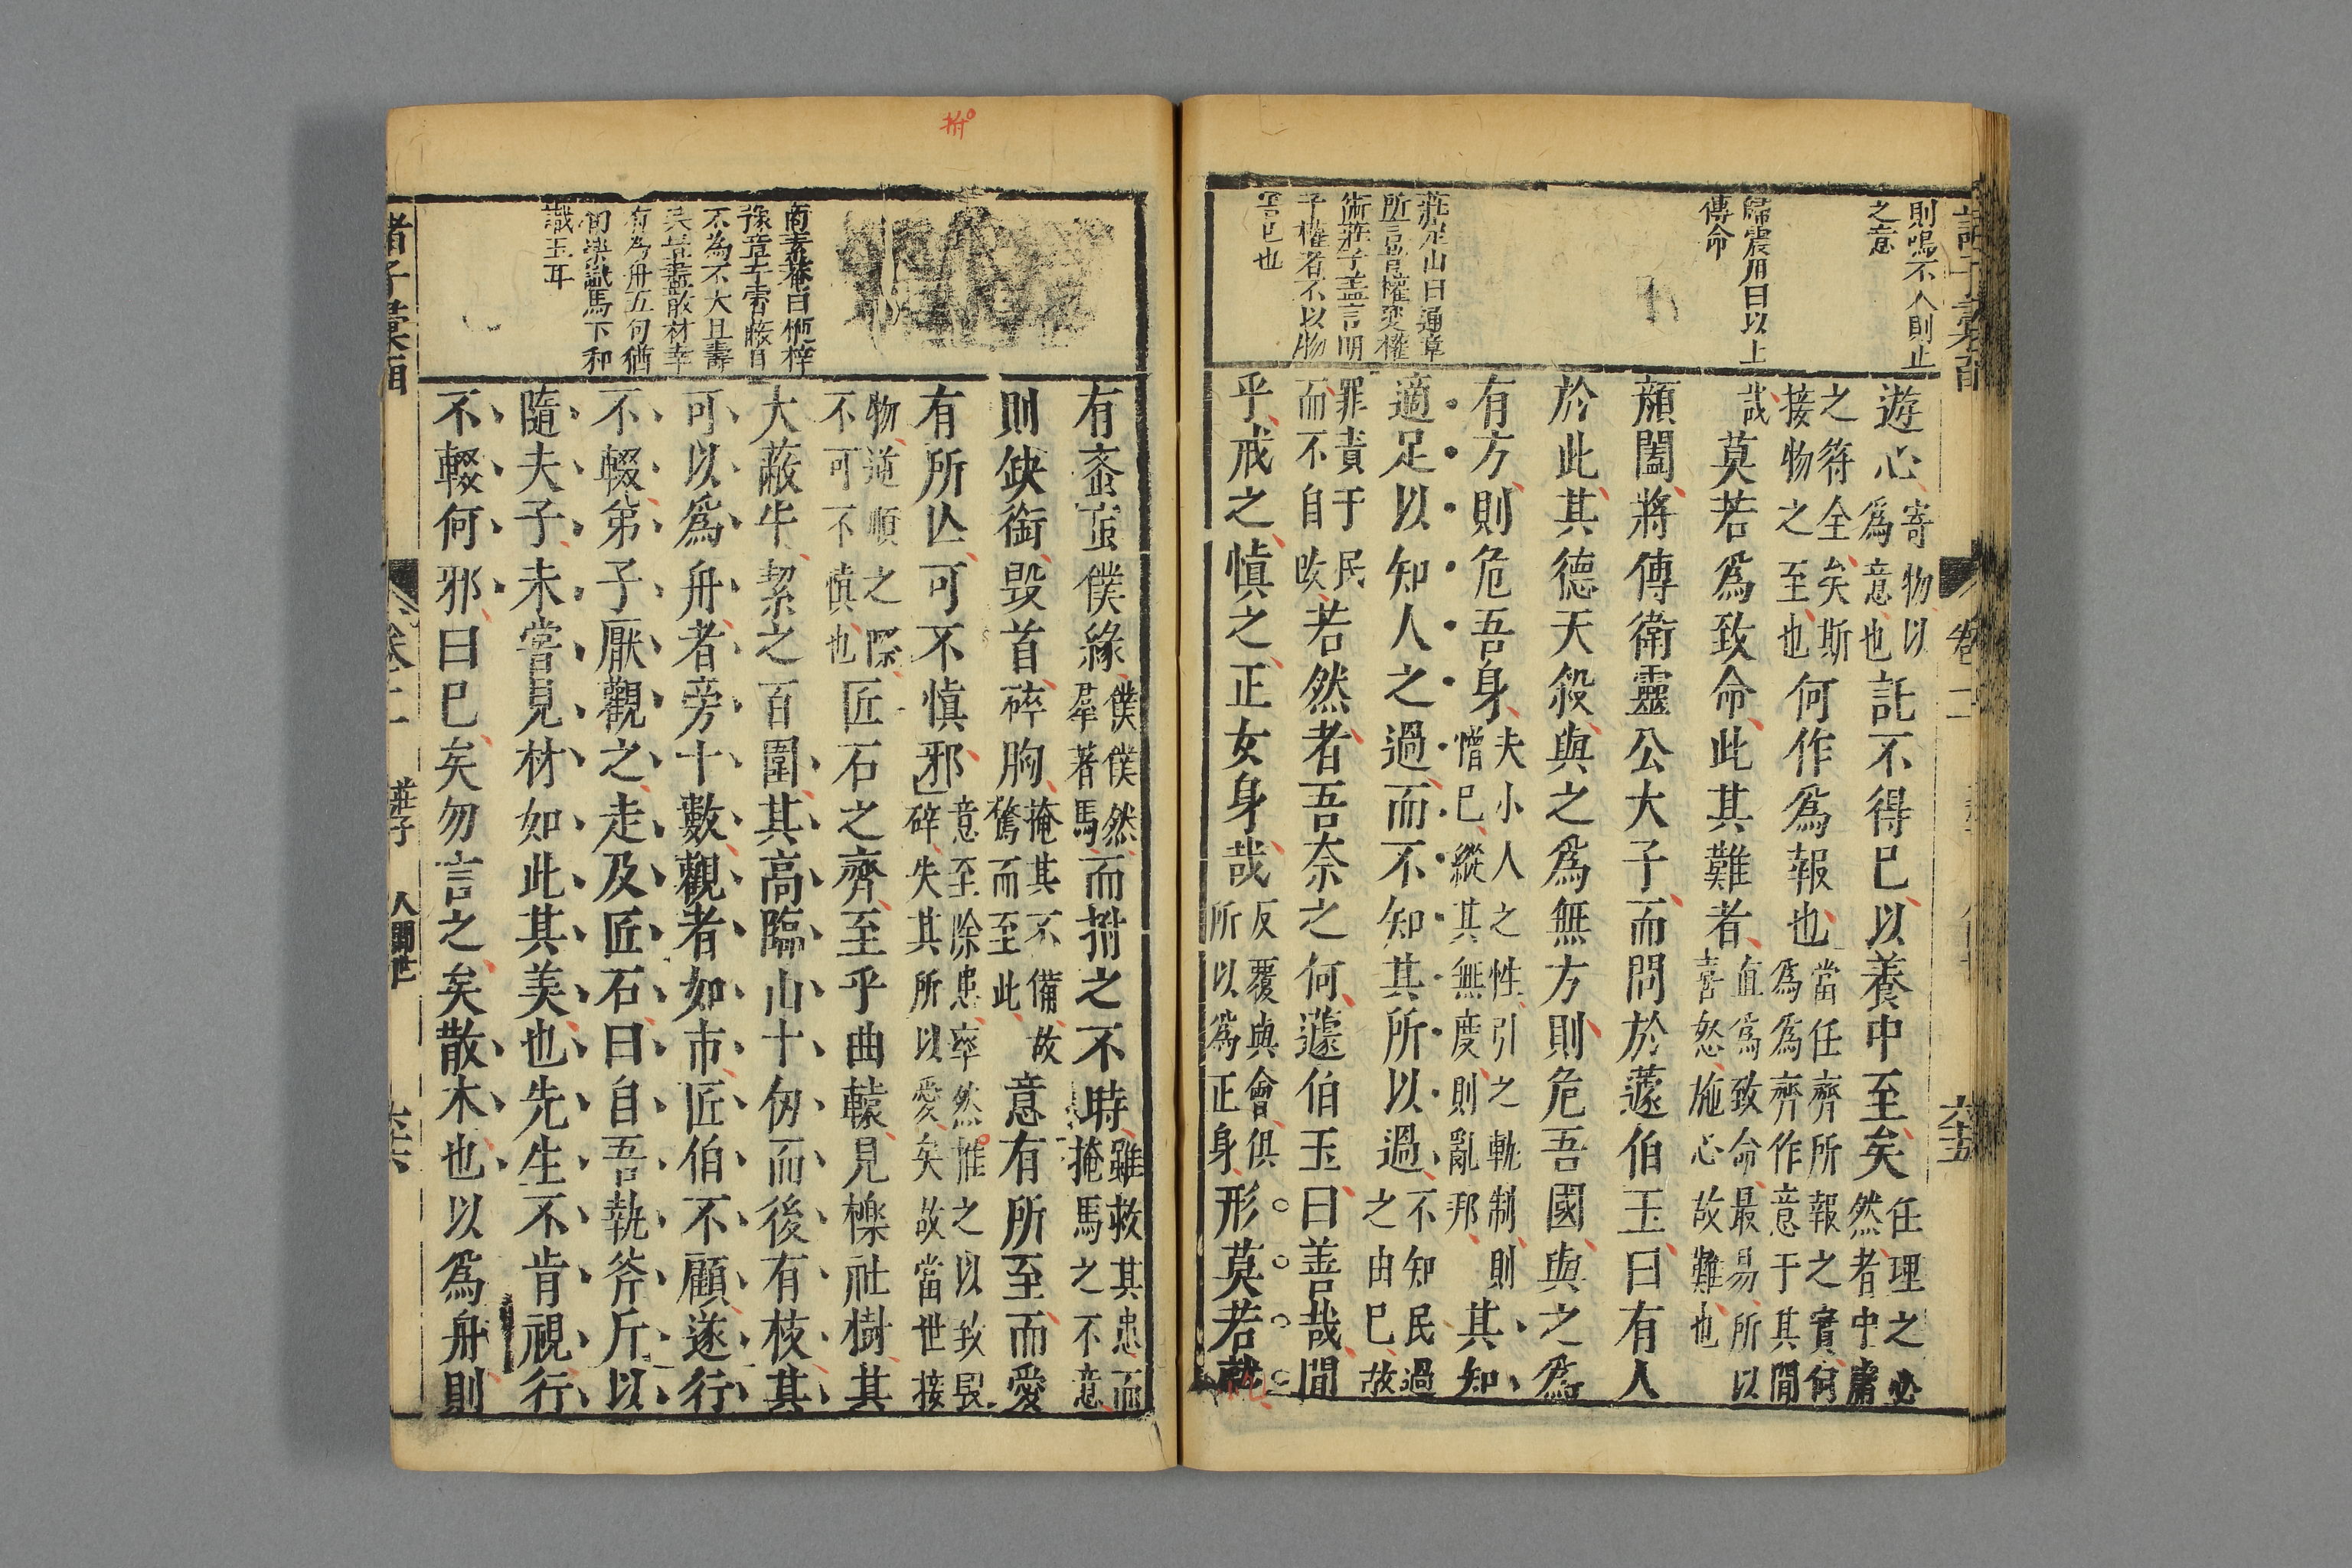 則鳴不入則止
之意
歸震川曰以上
傳命
莊定山曰通章
所言皆權變權
術莊子蓋言明
于權者不以物
害己也
遊心寄物以為意也託不得已以養中至矣任理之必然者中庸
之符全矣斯接物之至也何作為報也當任齊所報之實何為為齊作意于其間
哉莫若為致命此其難者直為致命最易所以喜怒施心故難也
顏闔將傅衛靈公大子而問於蘧伯玉曰有人
於此其德天殺與之為無方則危吾國與之為
有方則危吾身夫小人之性引之軌制則憎己縱其無度則亂邦其知
適足以知人之過而不知其所以過不知民過之由己故
罪責于民而不自咎若然者吾奈之何蘧伯玉曰善哉問
乎戒之慎之正女身哉反覆與會俱所以為正身形莫若就
卷二
六十五
有蚉䖟僕緣僕僕然羣著馬而拊之不時雖救其患而掩馬之不意
則缺銜毀首碎胸掩其不備故驚而至此意有所至而愛
有所亾可不慎邪意至除患率然拊之以致毀碎失其所以愛矣故當世接
物逆順之際不可不慎也匠石之齊至乎曲轅見櫟社樹其
大蔽牛絜之百圍其高臨山十仞而後有枝其
可以為舟者旁十數觀者如市匠伯不顧遂行
不輟弟子厭觀之走及匠石曰自吾執斧斤以
隨夫子未嘗見材如此其美也先生不肯視行
不輟何邪曰已矣勿言之矣散木也以為舟則
不為不大且壽
有為舟五句猶
識玉耳
諸子彙函
卷二
莊子
人間世
六十六
拊